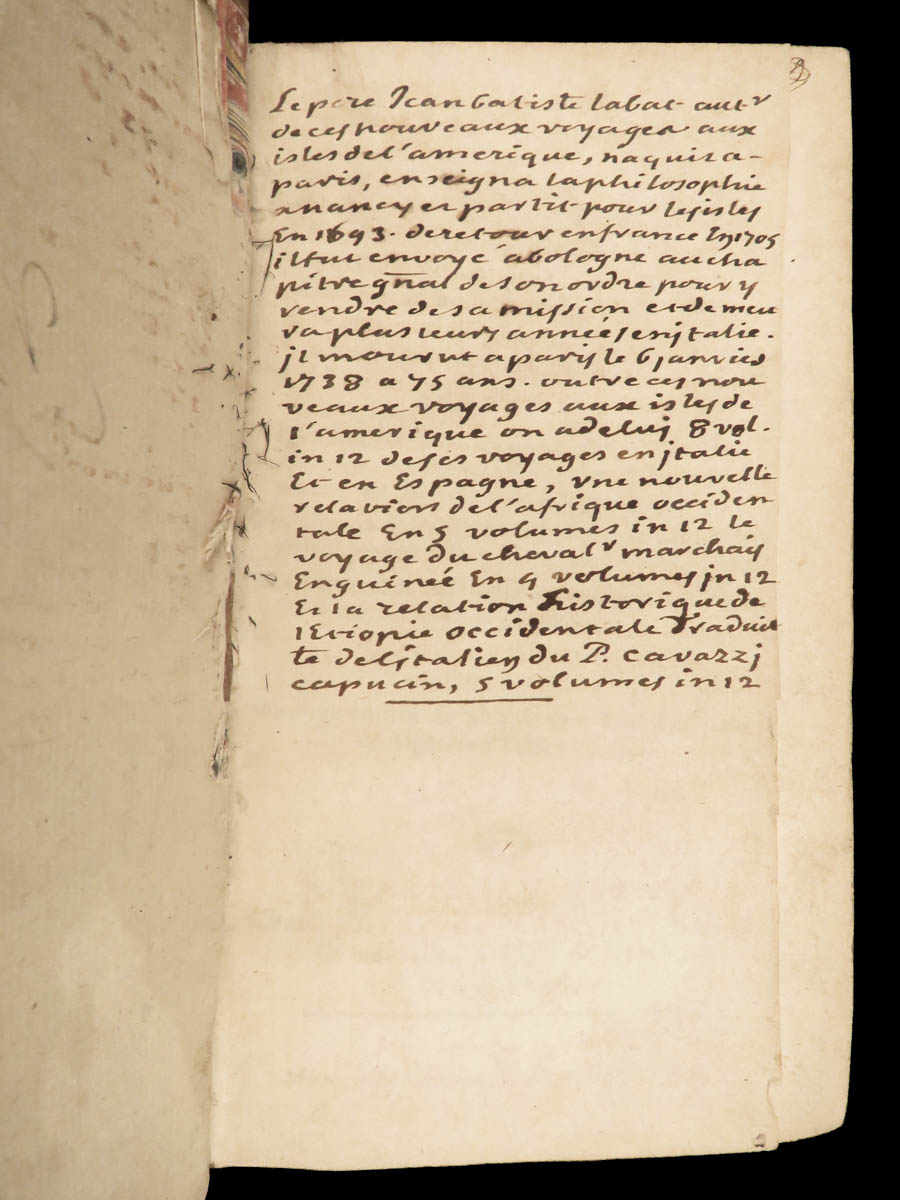 Le pere Jean batiste labat autr
de ces nouveaux voyages aux
isles de l'amerique, naquit a-
paris, enseigna la philosophie
a nancy et partit pour les isles
En 1693. de retour en france En 1705
il fut envoyé a bologne au cha
pitre gnãl de son ordre pour y
rendre de sa mission et demeu
ra plusieurs années en jtalie.
jl mourut a paris le 6 janvier
1738 a 75 ans. outre ces nou
veaux voyages aux isles de
l'amerique on a de luj 8 vol.
in 12 de ses voyages en jtalie
Et en Espagne, vne nouvelle
relation de l'afrique occiden
tale En 5 volumes in 12 le
voyage du chevalr marchais
En guinée En 4 volumes jn 12
Et la relation historique de
lEtiopie occidentale traduit
te de ljtalien du P. cavazzj
capucin, 5 volumes in 12